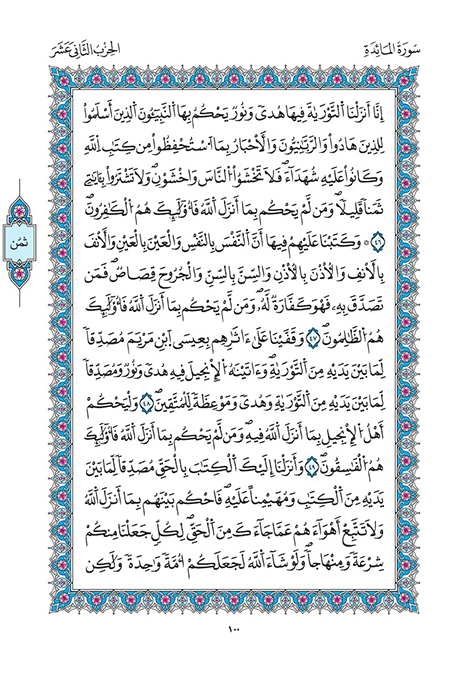 سُورَةُ المَائِدَةِ
الحِزْبُ الثَّانِي عَشَرَ
إِنَّا أَنزَلْنَا اَ۬لتَّوْر۪يٰةَ فِيهَا هُدىٗ وَنُورٞ يَحْكُمُ بِهَا اَ۬لنَّبِيٓـُٔونَ اَ۬لذِينَ أَسْلَمُواْ
لِلذِينَ هَادُواْ وَالرَّبَّٰنِيُّونَ وَالْأَحْبَارُ بِمَا اَ۟سْتُحْفِظُواْ مِن كِتَٰبِ اِ۬للَّهِ
وَكَانُواْ عَلَيْهِ شُهَدَآءَۖ فَلَا تَخْشَوُاْ اُ۬لنَّاسَ وَاخْشَوْنِۖ وَلَا تَشْتَرُواْ بِـَٔايَٰتِے
ثَمَناٗ قَلِيلاٗۖ وَمَن لَّمْ يَحْكُم بِمَا أَنزَلَ اَ۬للَّهُ فَأُوْلَٰٓئِكَ هُمُ اُ۬لْكَٰفِرُونَۖ
٤٦ ۞ وَكَتَبْنَا عَلَيْهِمْ فِيهَا أَنَّ اَ۬لنَّفْسَ بِالنَّفْسِ وَالْعَيْنَ بِالْعَيْنِ وَالْأَنفَ
بِالْأَنفِ وَالْأُذْنَ بِالْأُذْنِ وَالسِّنَّ بِالسِّنِّ وَالْجُرُوحَ قِصَاصٞۖ فَمَن
تَصَدَّقَ بِهِۦ فَهُوَ كَفَّارَةٞ لَّهُۥۖ وَمَن لَّمْ يَحْكُم بِمَا أَنزَلَ اَ۬للَّهُ فَأُوْلَٰٓئِكَ
هُمُ اُ۬لظَّٰلِمُونَۖ ٤٧ وَقَفَّيْنَا عَلَىٰٓ ءَاثٰ۪رِهِم بِعِيسَى اَ۪بْنِ مَرْيَمَ مُصَدِّقاٗ
لِّمَا بَيْنَ يَدَيْهِ مِنَ اَ۬لتَّوْر۪يٰةِۖ وَءَاتَيْنَٰهُ اُ۬لْإِنجِيلَ فِيهِ هُدىٗ وَنُورٞ وَمُصَدِّقاٗ
لِّمَا بَيْنَ يَدَيْهِ مِنَ اَ۬لتَّوْر۪يٰةِ وَهُدىٗ وَمَوْعِظَةٗ لِّلْمُتَّقِينَۖ ٤٨ وَلْيَحْكُمْ
أَهْلُ اُ۬لْإِنجِيلِ بِمَا أَنزَلَ اَ۬للَّهُ فِيهِۖ وَمَن لَّمْ يَحْكُم بِمَا أَنزَلَ اَ۬للَّهُ فَأُوْلَٰٓئِكَ
هُمُ اُ۬لْفَٰسِقُونَۖ ٤٩ وَأَنزَلْنَا إِلَيْكَ اَ۬لْكِتَٰبَ بِالْحَقِّ مُصَدِّقاٗ لِّمَا بَيْنَ
يَدَيْهِ مِنَ اَ۬لْكِتَٰبِ وَمُهَيْمِناً عَلَيْهِۖ فَاحْكُم بَيْنَهُم بِمَا أَنزَلَ اَ۬للَّهُ
وَلَا تَتَّبِعْ أَهْوَآءَهُمْ عَمَّا جَآءَكَ مِنَ اَ۬لْحَقِّۖ لِكُلّٖ جَعَلْنَا مِنكُمْ
شِرْعَةٗ وَمِنْهَاجاٗۖ وَلَوْ شَآءَ اَ۬للَّهُ لَجَعَلَكُمْ أُمَّةٗ وَٰحِدَةٗ وَلَٰكِن
ثُمُن
١٠٠